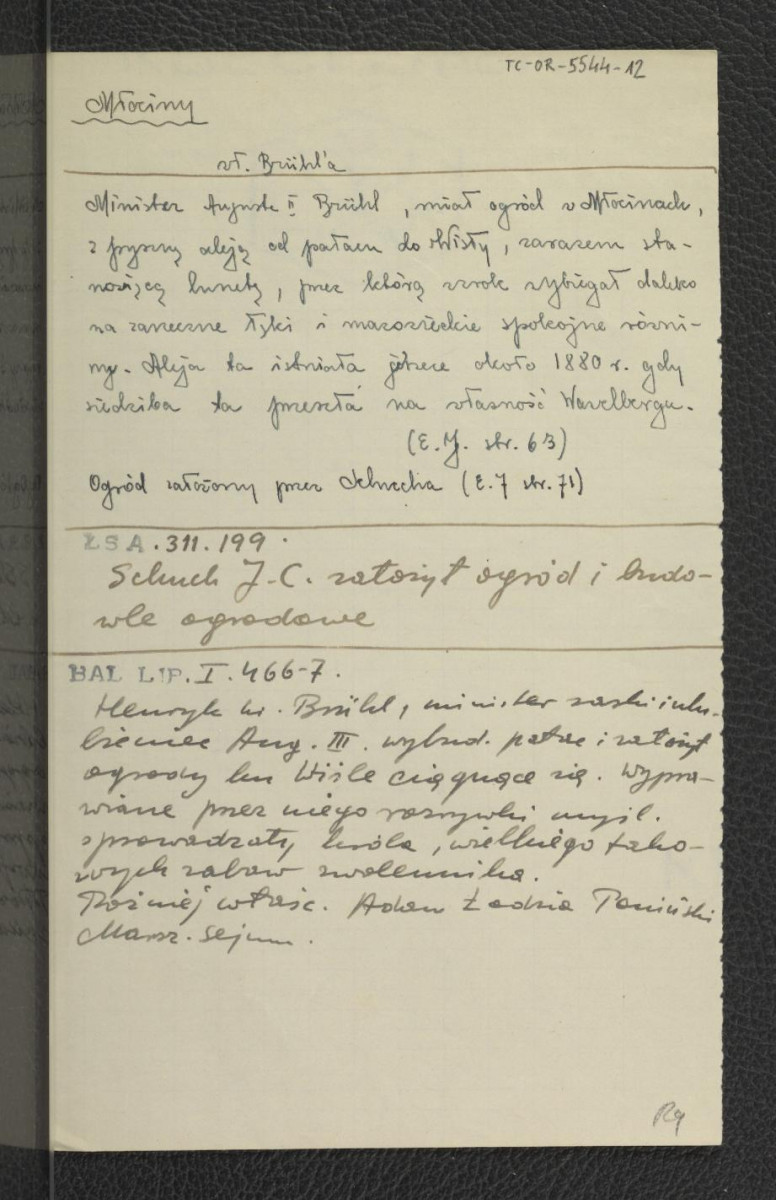 TC-OR-5544-12
Młociny
wł. Brühl'a
Minister Augusta II Brühl, miał ogród w Młocinach,
z pyszną aleją od pałacu do Wisły, zarazem sta-
nowiącą lunetę, przez którą wzrok wybiegał daleko
na zarzeczne łęki i mazowieckie spokojne równi-
ny. Aleja ta istniała jeszcze około 1880 r. gdy
siedziba ta przeszła na własność Wawelberga.
(E.J. str. 63)
Ogród założony przez Schucha (E.J str. 71)
ŁSA. 311. 199.
Schuch J.C. założył ogród i budo-
wle ogrodowe
BAL LIP. I. 466-7.
Henryk hr. Brühl, minister saski i ulu-
bieniec Aug. III. wybud. pałac i założył
ogrody ku Wiśle ciągnące się. Wypra-
wiane przez niego rozrywki myśl.
sprowadzały króla, wielkiego tako-
wych zabaw zwolennika.
Później właśc. Adam Łodzia Poniński
Marsz. Sejmu.